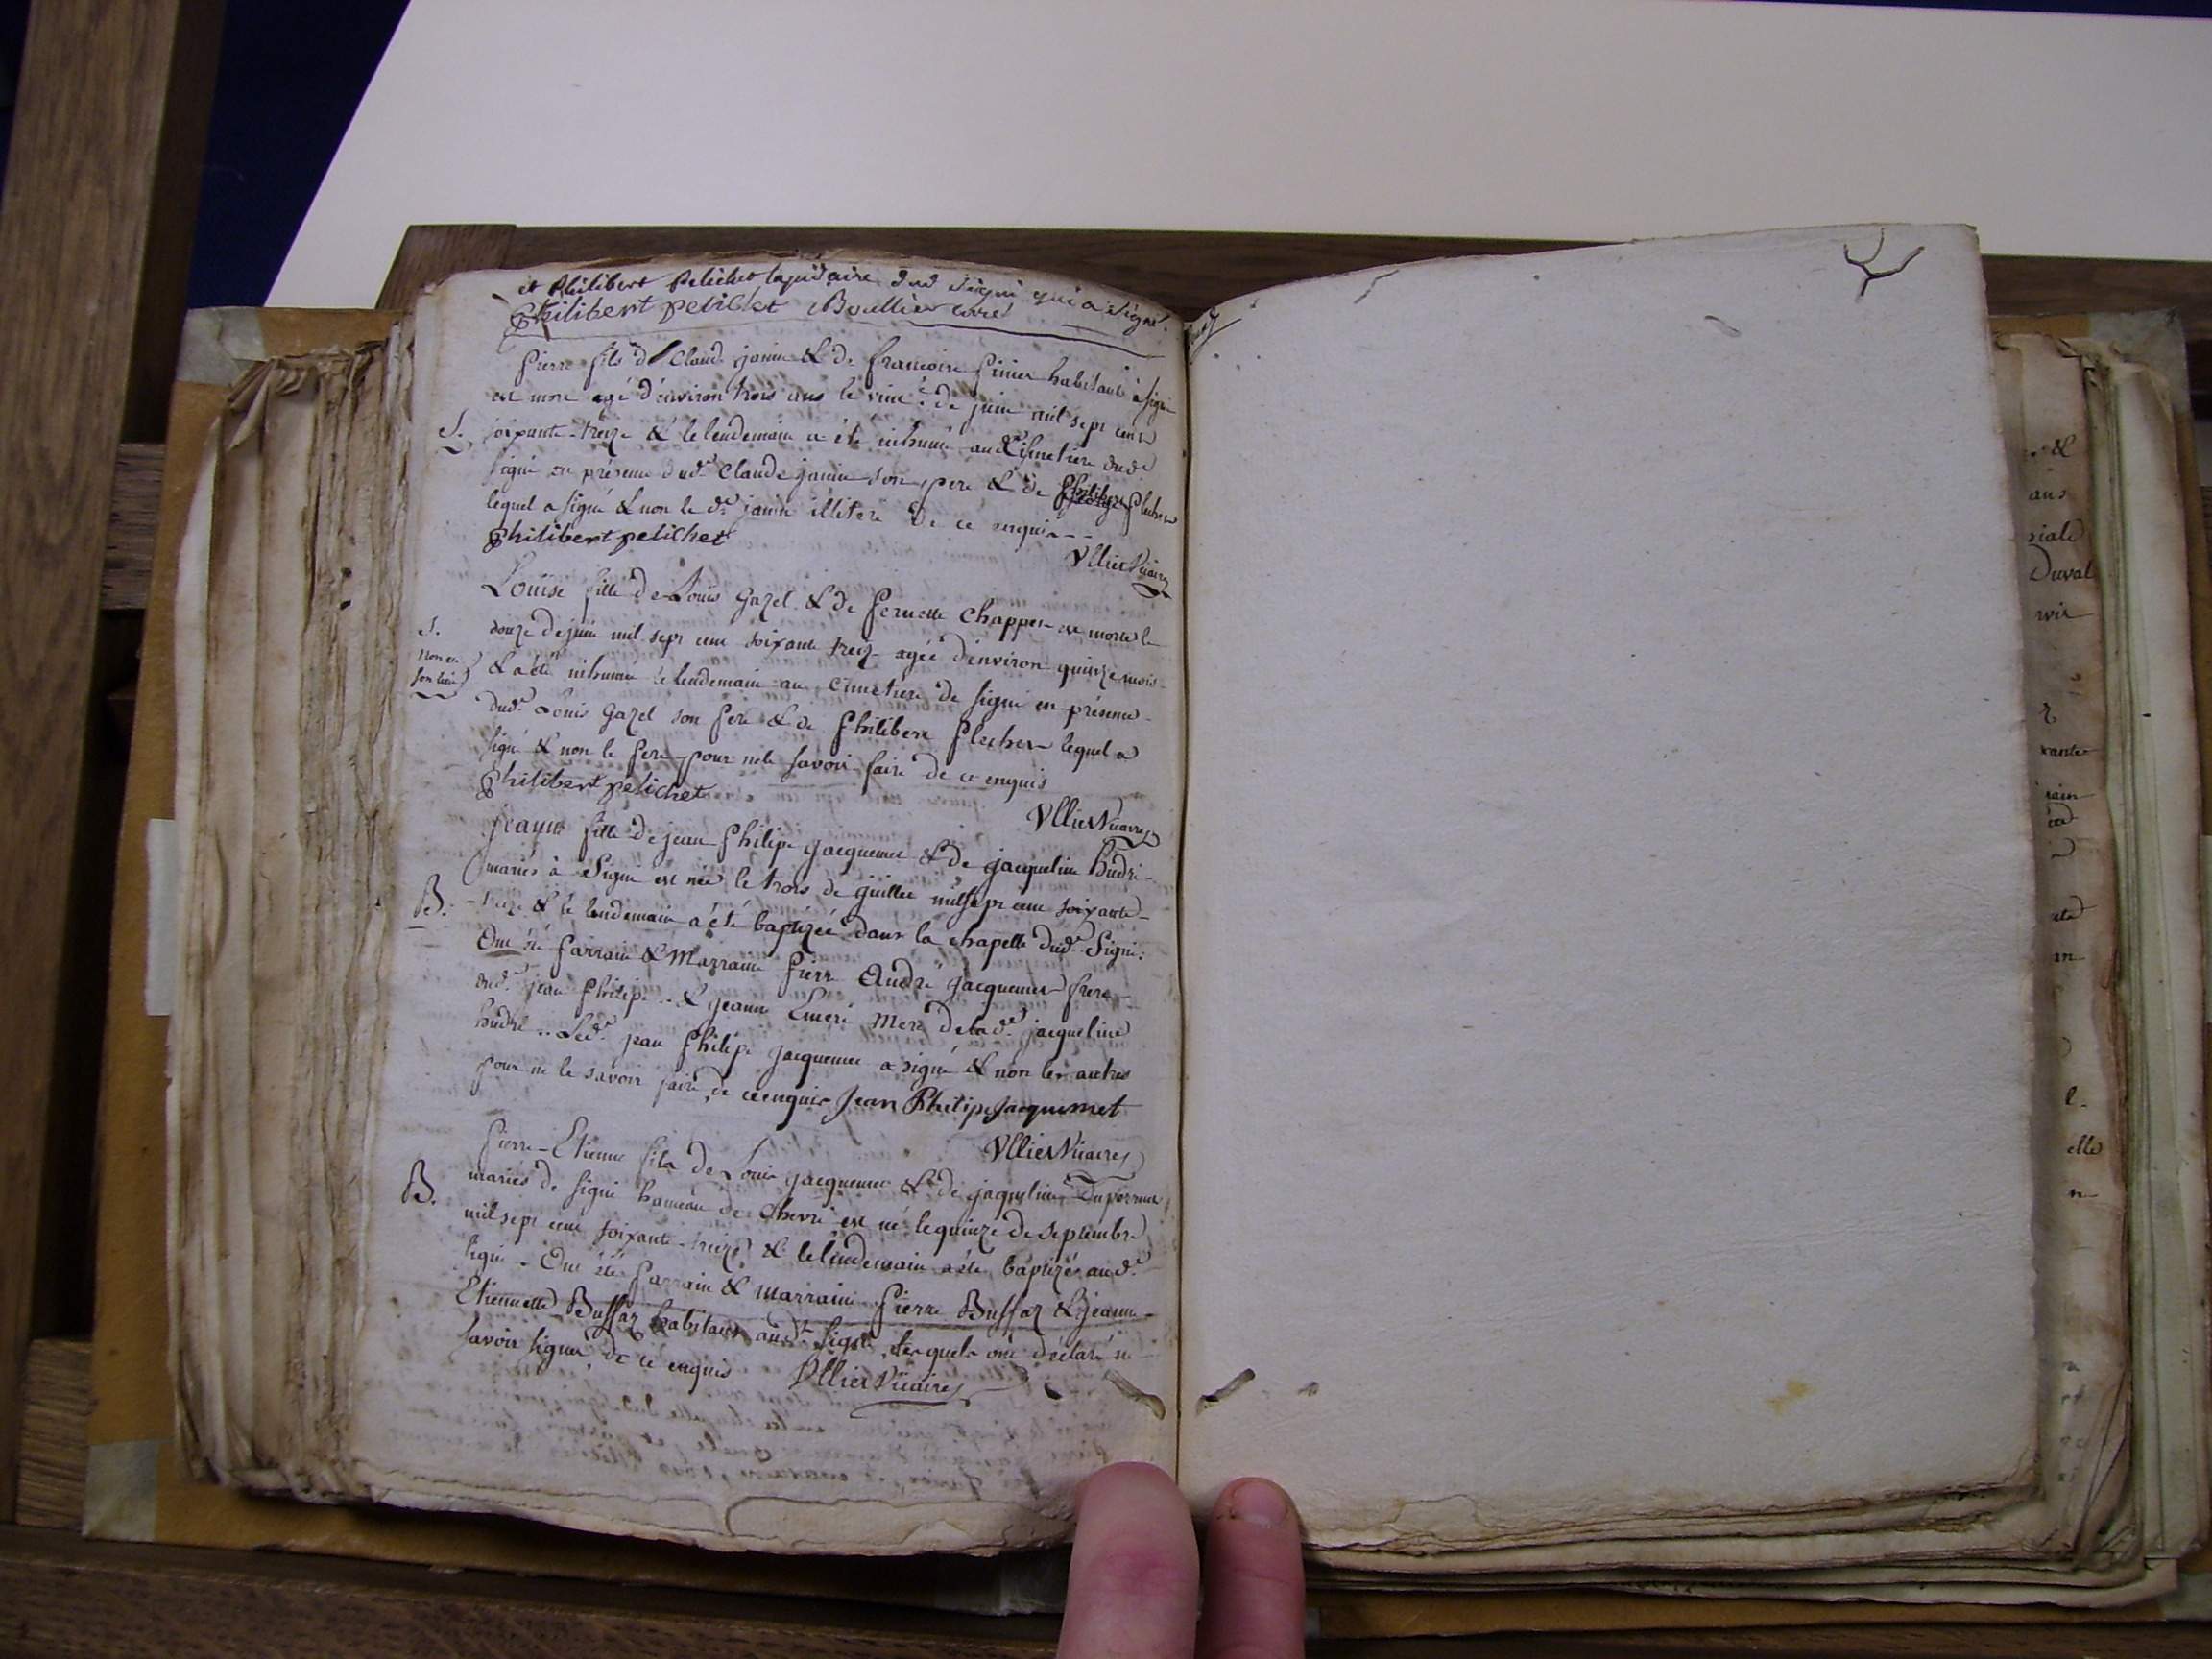 et Philibert Pelichet lapidaire dud Signi qui a signé.
Philibert pelichet Boullier curé
Pierre fils de Claude janin & de francoise habitants à signi
est mort agé d'environ trois ans le de juin mil sept cent
S. soixante-treize & le lendemain a été inhumé au Cimetiere dudt
signi en présence dudt Claude janin son pere & de Philibert
lequel a signé & non le dt janin illiteré de ce enquis - - -
Philibert pelichet
Vllier Vicaire
Louise fille de Louis Gazel & de Pernette Chappe est morte le
S. douze de juin mil sept cent soixante treize agée d'environ quinze mois
non en
son lieu
& a été inhumée le lendemain au cimetiere de signi en présence
dudt Louis Gazel son pere & de Philibert lequel a
signé & non le pere pour ne le savoir faire de ce enquis
Philibert pelichet
Vllier Vicaire
Jeanne fille de jean Philipe jacquemet & de jacqueline hudri
mariés à Signi est née le trois de juillet mil sept cent soixante-
B. -treize & le lendemain a été baptizée dans la chapelle dudt Signi:
Ont été Parrain & Marraine Pierre André jacquemet frere
dudt jean Philipe .. & jeanne mere de ladte jacqueline
hudri .. Ledt jean Philipe jacquemet a signé & non les autres
pour ne le savoir faire, de ce enquis Jean Philipe Jacquemet
Vllier Vicaire
Pierre-Etienne fils de Louis jacquemet & de jaqueline
B. mariés de signi hameau de Chevri est né le quinze de septembre
mil sept cent soixante-treize & le lendemain a été baptizé audt
signi. Ont été Parrain & marraine Pierre Buffaz & jeanne-
Etiennette Buffaz habitans audt signi, lesquels ont déclaré ne
savoir signer, de ce enquis Vllier Vicaire
ans
Duval
elle